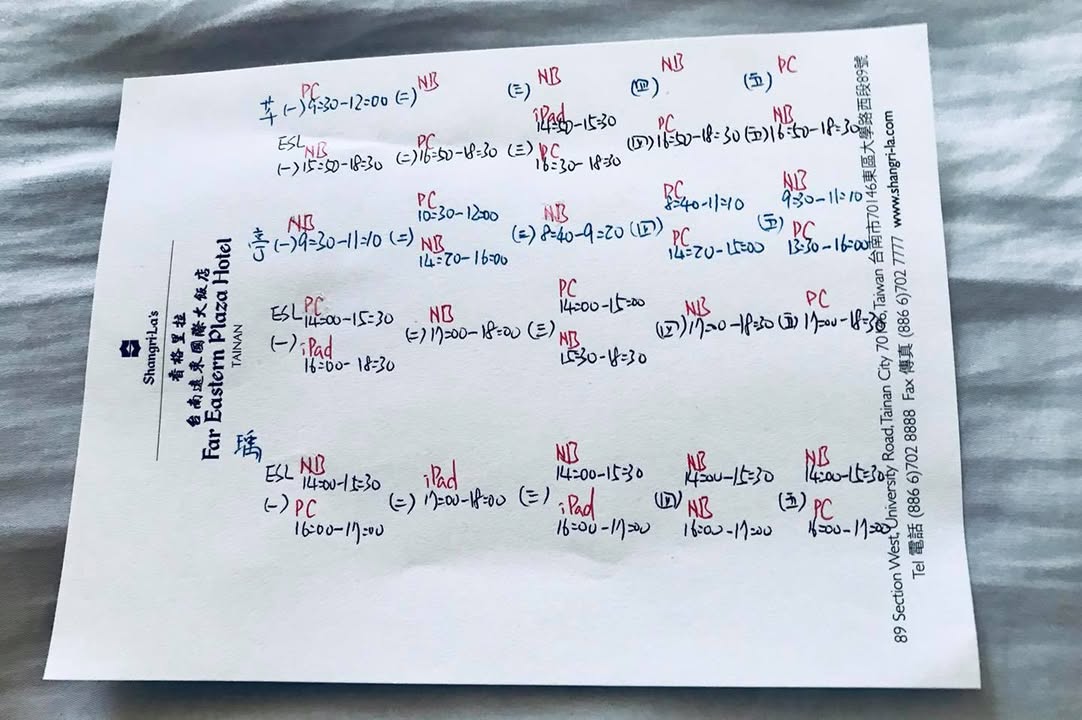 PC NB NB NB PC
(一) 9:30-12:00 (二) (三) (四) (五)
iPad
14:50-15:30
ESL
NB PC PC PC NB
(一) 15:50-18:30 (二) 16:50-18:30 (三) 16:30-18:30 (四) 16:50-18:30 (五) 16:50-18:30
NB PC NB PC NB
(一) 9:30-11:10 (二) 10:30-12:00 (三) 8:40-9:20 (四) 8:40-11:10 (五) 9:30-11:10
NB PC PC
14:20-16:00 14:20-15:00 13:30-16:00
ESL PC NB PC NB PC
14:00-15:30 (二) 17:00-18:00 (三) 14:00-15:00 (四) 17:00-18:30 (五) 17:00-18:30
(一) iPad NB
16:00-18:30 15:30-18:30
瑀
ESL NB iPad NB NB NB
14:00-15:30 (二) 17:00-18:00 (三) 14:00-15:30 (四) 14:00-15:30 (五) 14:00-15:30
(一) PC iPad NB PC
16:00-17:00 16:00-17:00 16:00-17:00 16:00-17:00
Shangri-La's
香格里拉
台南遠東國際大飯店
Far Eastern Plaza Hotel
TAINAN
89 Section West, University Road, Tainan City 70146, Taiwan 台南市70146東區大學路西段89號
Tel 電話 (886 6) 702 8888 Fax 傳真 (886 6) 702 7777 www.shangri-la.com